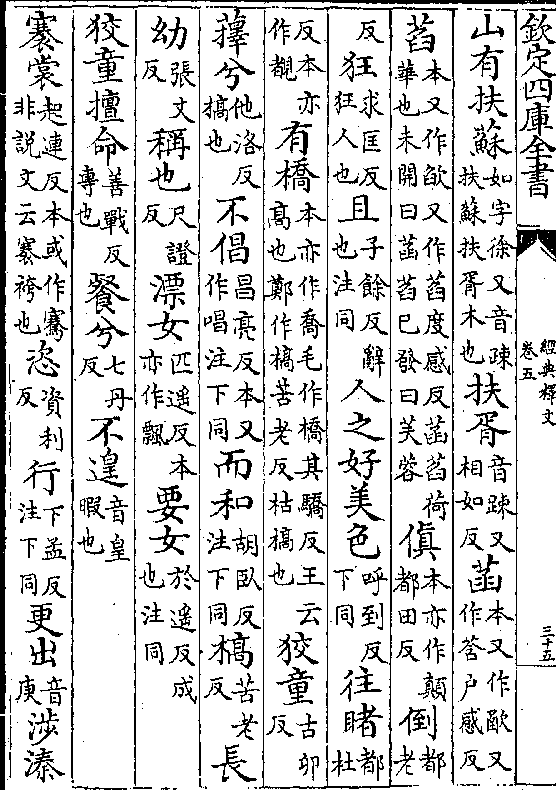 欽定四庫全書
經典釋文
卷五
三十五
山有扶蘇如字徐又音踈扶蘇扶胥木也扶胥音踈又相如反菡本又作歐又作莟户感反
萏本又作欿又作萏度感反菡萏荷華也未開曰菡萏已發曰芙蓉傎本亦作顛都田反倒都老
反狂求匡反狂人也且子餘反辭也注同人之好美色呼到反下同往睹都杜
反本亦作覩有橋本亦作喬毛作橋其驕反王云高也鄭作槁苦老反枯槁也狡童古卯反
蘀兮他洛反槁也不倡昌亮反本又作唱注下同而和胡臥反注下同槁苦老反長
幼張丈反稱也尺證反漂女匹遥反本亦作飄要女於遥反成也注同
狡童擅命善戰反專也餐兮七丹反不遑音皇暇也
褰裳起連反本或作騫非説文云褰袴也恣資利反行下孟反注下同更出音庚涉溱